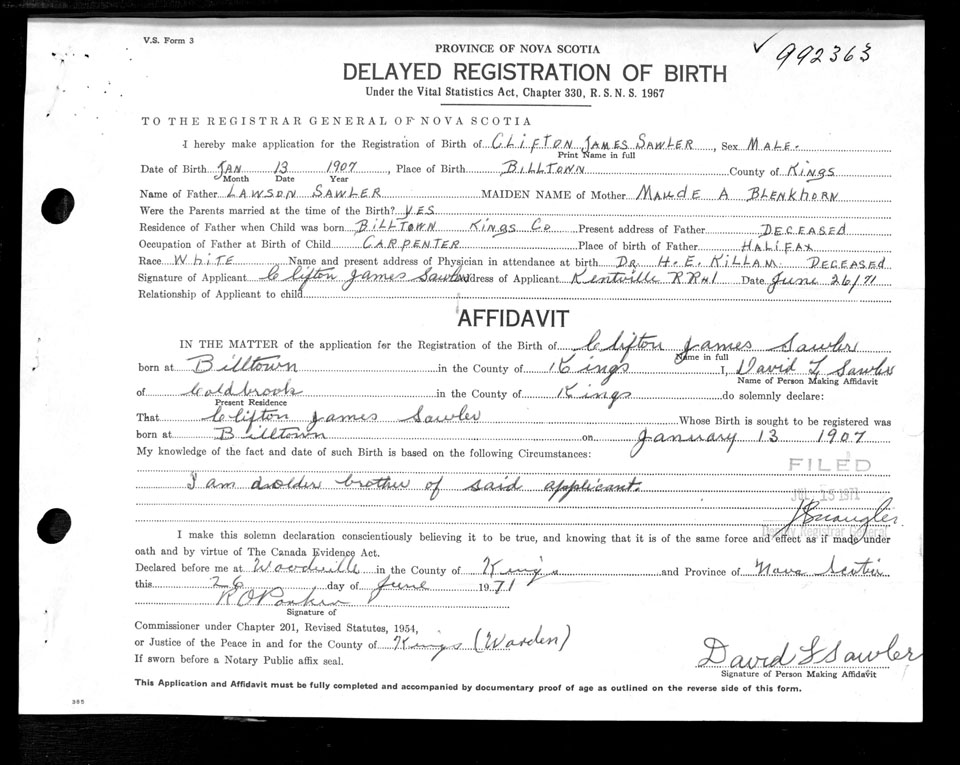 V.S. Form 3
✓ 992363
PROVINCE OF NOVA SCOTIA
DELAYED REGISTRATION OF BIRTH
Under the Vital Statistics Act, Chapter 330, R.S.N.S. 1967
TO THE REGISTRAR GENERAL OF NOVA SCOTIA
I hereby make application for the Registration of Birth of CLIFTON JAMES SAWLER, Sex MALE.
Print Name in full
Date of Birth JAN 13 1907, Place of Birth BILLTOWN County of KINGS
Month Date Year
Name of Father LAWSON SAWLER MAIDEN NAME of Mother MAUDE A BLENKHORN
Were the Parents married at the time of the Birth? YES
Residence of Father when Child was born BILLTOWN KINGS CO Present address of Father DECEASED
Occupation of Father at Birth of Child CARPENTER Place of birth of Father HALIFAX
Race WHITE Name and present address of Physician in attendance at birth DR. H.E. KILLAM DECEASED
Signature of Applicant Clifton James Sawler Address of Applicant Kentville RR#1 Date June 26/71
Relationship of Applicant to child
AFFIDAVIT
IN THE MATTER of the application for the Registration of the Birth of Clifton James Sawler
Name in full
born at Billtown in the County of Kings I, David L Sawler
Name of Person Making Affidavit
of Coldbrook in the County of Kings do solemnly declare:
Present Residence
That Clifton James Sawler Whose Birth is sought to be registered was
born at Billtown on January 13 1907
My knowledge of the fact and date of such Birth is based on the following Circumstances:
FILED
I am older brother of said applicant.
JUL 15 1971
Deputy Registrar General
I make this solemn declaration conscientiously believing it to be true, and knowing that it is of the same force and effect as if made under
oath and by virtue of The Canada Evidence Act.
Declared before me at Woodville in the County of Kings and Province of Nova Scotia
this 26 day of June 1971
R O Parker
Signature of
Commissioner under Chapter 201, Revised Statutes, 1954,
or Justice of the Peace in and for the County of Kings (Warden)
If sworn before a Notary Public affix seal.
David L Sawler
Signature of Person Making Affidavit
This Application and Affidavit must be fully completed and accompanied by documentary proof of age as outlined on the reverse side of this form.